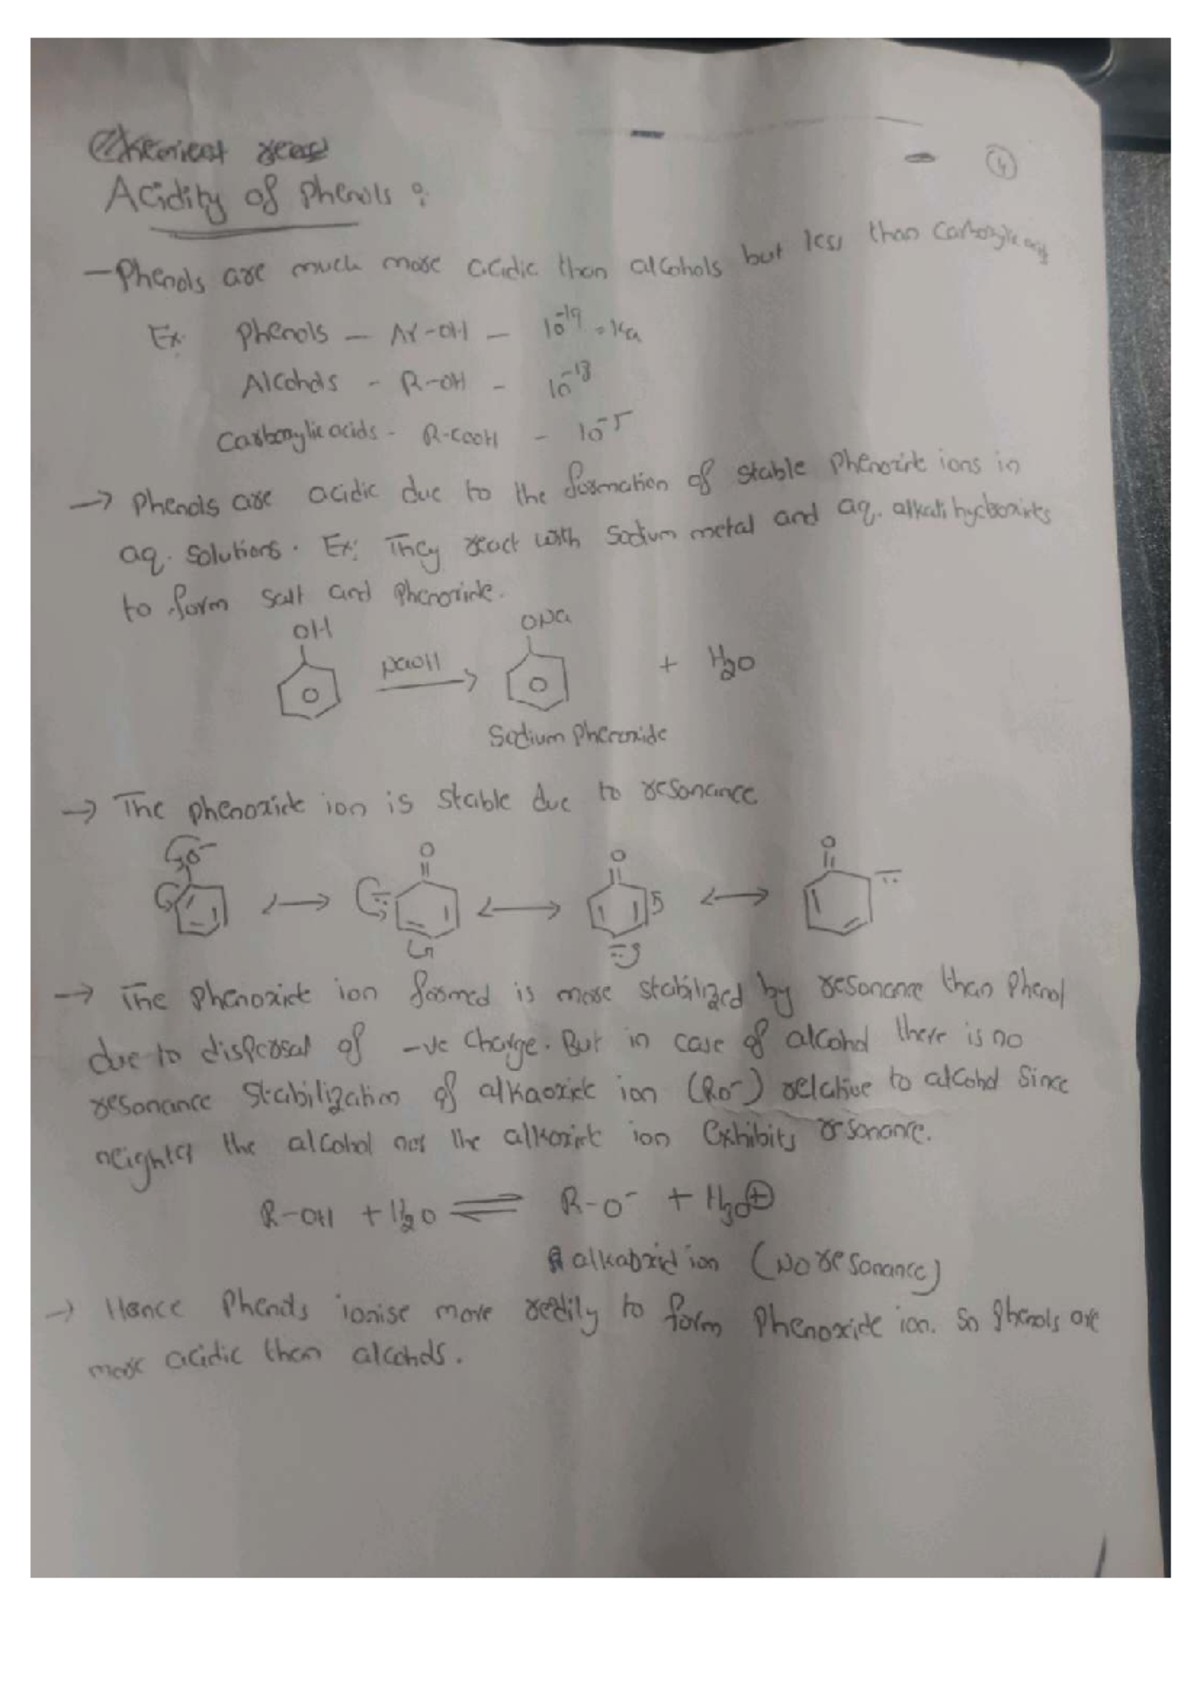 Chemical reac
④
Acidity of Phenols :
- Phenols are much more acidic than alcohols but less than Carboxylic
Ex: Phenols - Ar-OH - 10⁻¹⁹ = Ka
Alcohols - R-OH - 10⁻¹³
Carboxylic acids - R-COOH - 10⁻⁵
→ Phenols are acidic due to the formation of stable Phenoxide ions in
aq. solutions. Ex: They react with sodium metal and aq. alkali hydroxides
to form salt and Phenoxide.
OH ONa
NaOH → + H₂O
Sodium Phenoxide
→ The phenoxide ion is stable due to resonance
O⁻ ↔ O ↔ O ↔ O
→ The Phenoxide ion formed is more stabilized by resonance than Phenol
due to dispersal of -ve charge. But in case of alcohol there is no
resonance Stabilization of alkaoxide ion (RO⁻) relative to alcohol Since
the alcohol nor the alkoxide ion Exhibits resonance.
R-OH + H₂O ⇌ R-O⁻ + H₃O⊕
alkaoxid ion (No resonance)
→ Hence Phenols ionise more readily to form Phenoxide ion. So Phenols are
more acidic than alcohols.